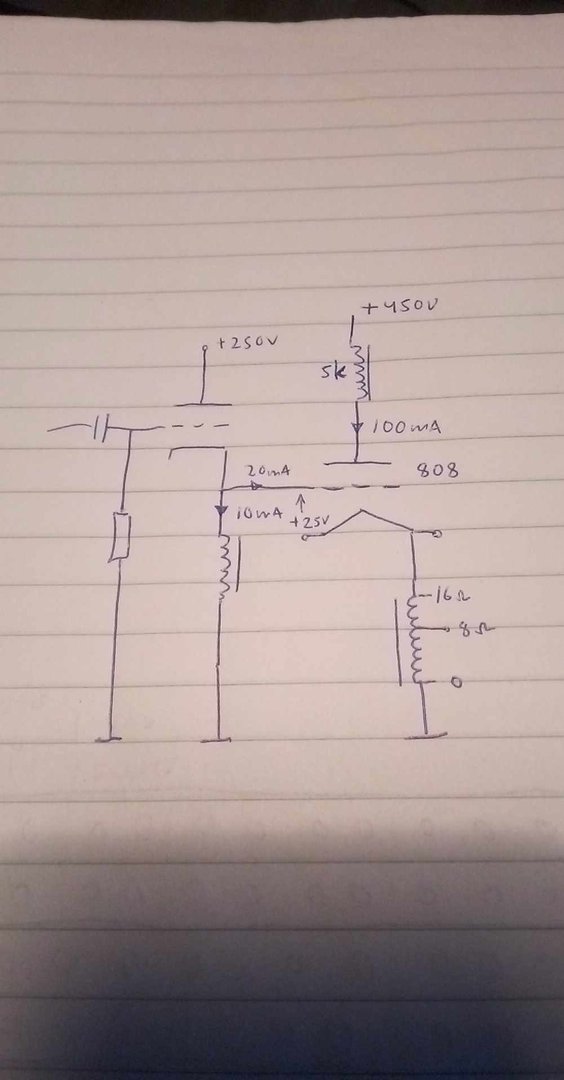 +450V
+250V
5k
100mA
20mA
808
10mA
+25V
16Ω
8Ω
0